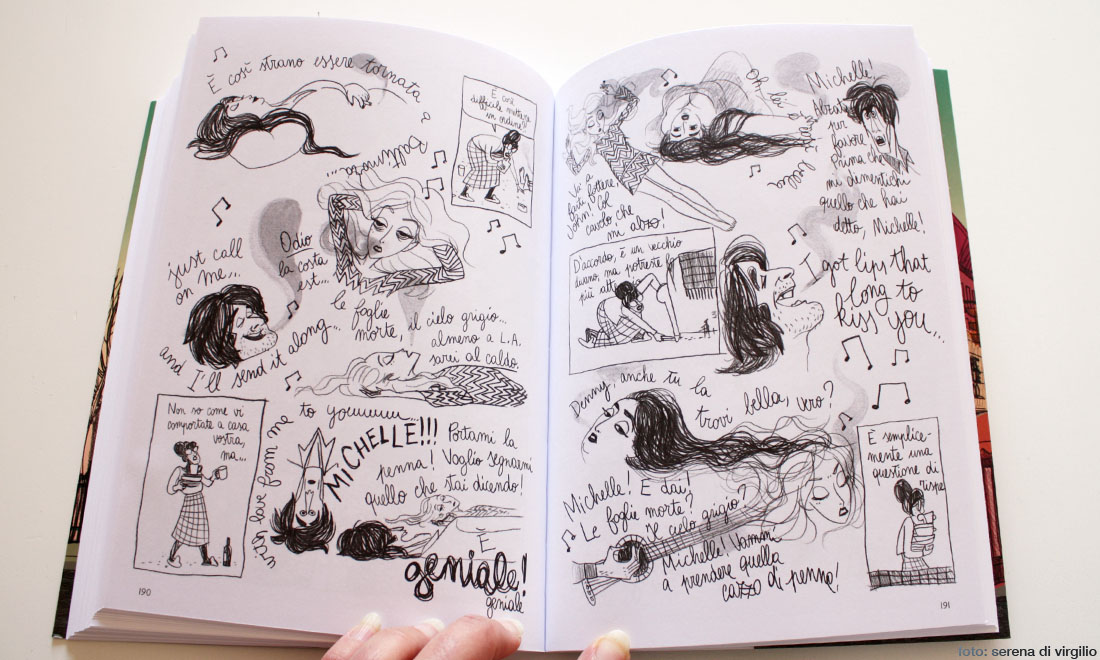 È così strano essere tornata a
New York
È così
difficile mettere
in ordine?
just call
on me...
Odio
la costa
est...
le foglie
morte,
il cielo grigio...
almeno a L.A.
sarei al caldo
and I'll send it along...
with love from me to youuuuu...
Non so come vi
comportate a casa
vostra,
ma...
MICHELLE!!! Portami la
penna! Voglio segnarmi
quello che stai dicendo!
È
geniale!
geniale
190
Oh, lei
è bella
Michelle!
Alzati
per
favore
prima che
mi dimentichi
quello che hai
detto, Michelle!
Va' a
farti fottere,
John! Col
cavolo che
mi alzo!
D'accordo, è un vecchio
divano, ma potreste
più
I got lips that
long to
kiss you...
Denny, anche tu la
trovi bella, vero?
Michelle! E dai!
"Le foglie morte?
Il cielo grigio?
Michelle! Vammi
a prendere quella
cazzo di penna!
È semplice-
mente una
questione di
rispe
191
foto: serena di virgilio